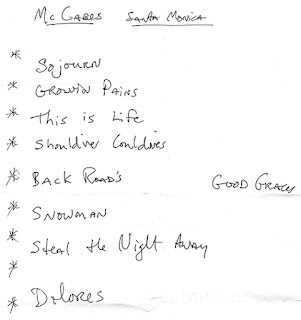 McCabes Santa Monica
* Sojourn
* Growin Pains
* This is Life
* Shouldives Couldives
* Back Road's Good Graces
* Snowman
* Steal the Night Away
*
* Dolores